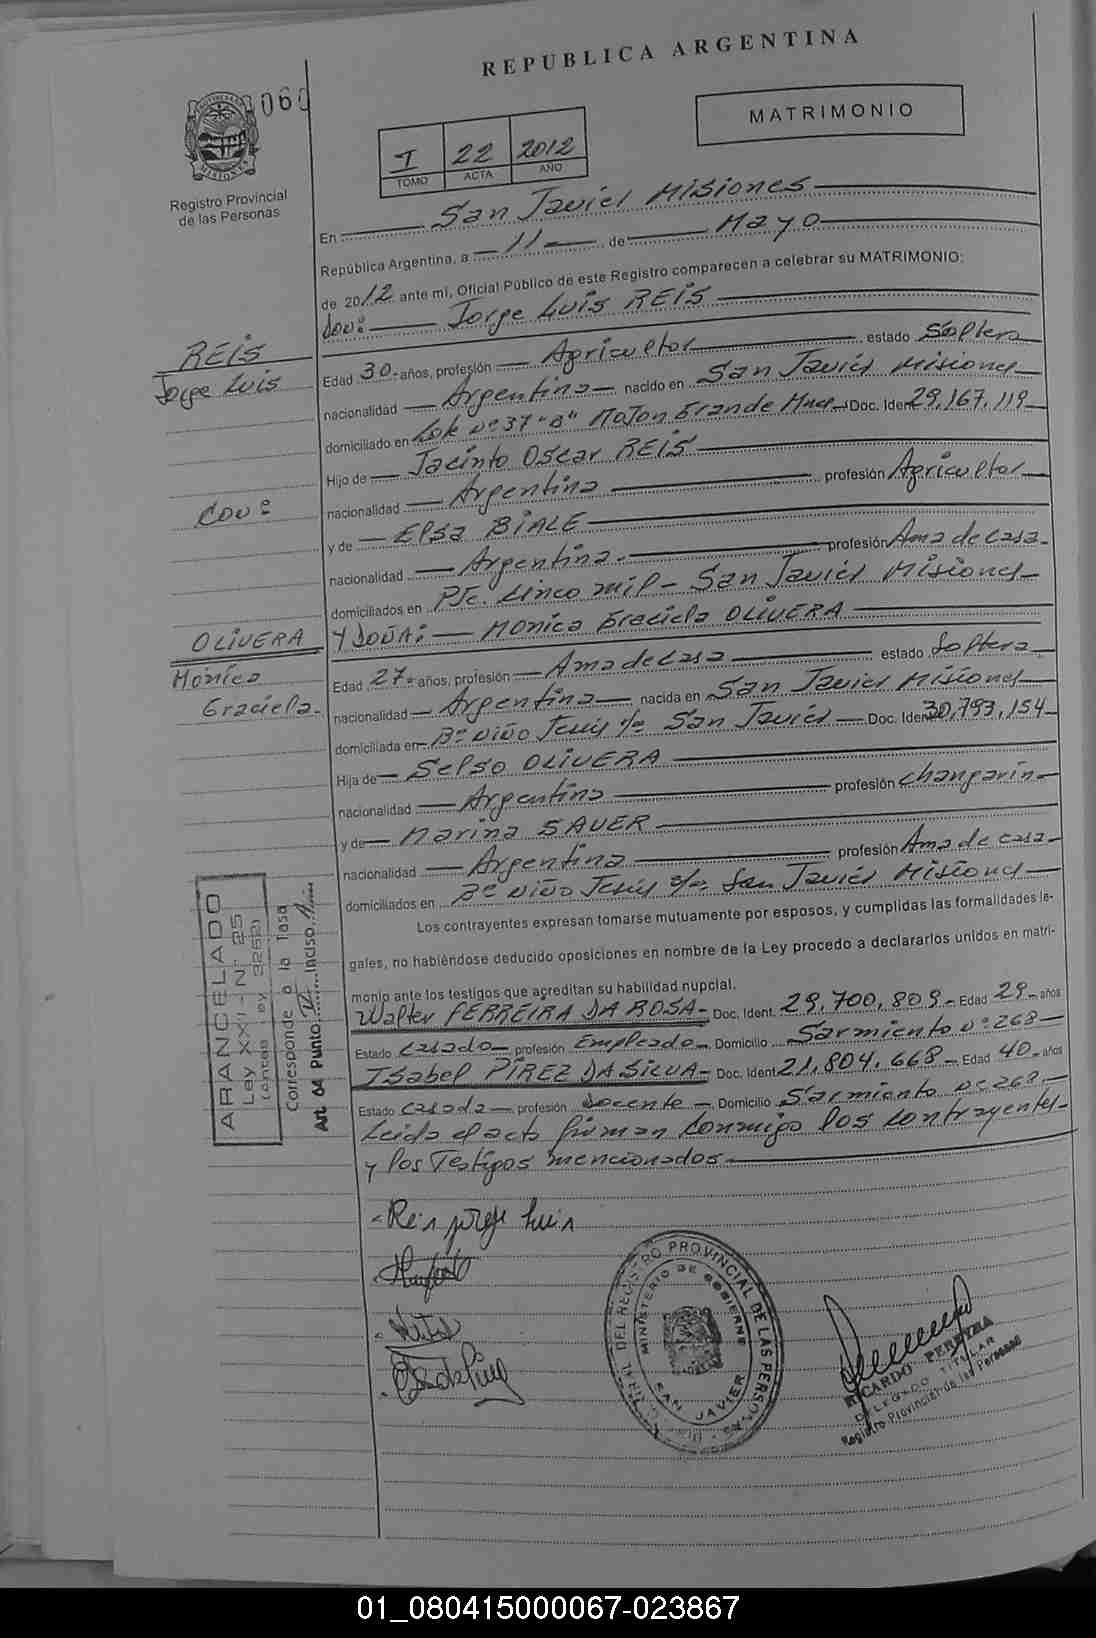 REPUBLICA ARGENTINA
MATRIMONIO
Registro Provincial
de las Personas
I 22 2012
TOMO ACTA AÑO
En San Javier Misiones
República Argentina, a 11 de Mayo
de 2012 ante mi, Oficial Público de este Registro comparecen a celebrar su MATRIMONIO:
Don: Jorge Luis REIS
REIS
Jorge Luis
Edad 30 años, profesión Agricultor estado Soltero
nacionalidad Argentina nacido en San Javier Misiones
domiciliado en Lote Nº 37 "B" Mojon Grande Mnes Doc. Ident 29,167,119
Hijo de Jacinto Oscar REIS
nacionalidad Argentina profesión Agricultor
Con:
y de Elsa BIALE
nacionalidad Argentina profesión Ama de casa
domiciliados en Pje. Cinco mil - San Javier Misiones
OLIVERA
Mónica
Graciela
Y DOÑA: Monica Graciela OLIVERA
Edad 27 años, profesión Ama de casa estado Soltera
nacionalidad Argentina nacida en San Javier Misiones
domiciliada en Bº Niño Jesús s/n San Javier Doc. Ident 30,793,154
Hija de Selso OLIVERA
nacionalidad Argentina profesión changarin
y de Marina SAUER
nacionalidad Argentina profesión Ama de casa
domiciliados en Bº Niño Jesús s/n San Javier Misiones
Los contrayentes expresan tomarse mutuamente por esposos, y cumplidas las formalidades le-
gales, no habiéndose deducido oposiciones en nombre de la Ley procedo a declararlos unidos en matri-
monio ante los testigos que acreditan su habilidad nupcial.
Walter FERREIRA DA ROSA Doc. Ident. 29,700,809 Edad 29 años
Estado casado profesión Empleado Domicilio Sarmiento Nº 268
Isabel PIREZ DA SILVA Doc. Ident 21,804,668 Edad 40 años
Estado casada profesión Docente Domicilio Sarmiento Nº 268
Leida el acta firman conmigo los contrayentes
y los Testigos mencionados
ARANCELADO
Ley XXI - Nº 25
Corresponde a la Tasa
Art 64 Punto IV Inciso
Reis jorge luis
DEL REGISTRO PROVINCIAL DE LAS PERSONAS
MINISTERIO DE GOBIERNO
SAN JAVIER
RICARDO PEREYRA
DELEGADO TITULAR
Registro Provincial de las Personas
01_080415000067-023867